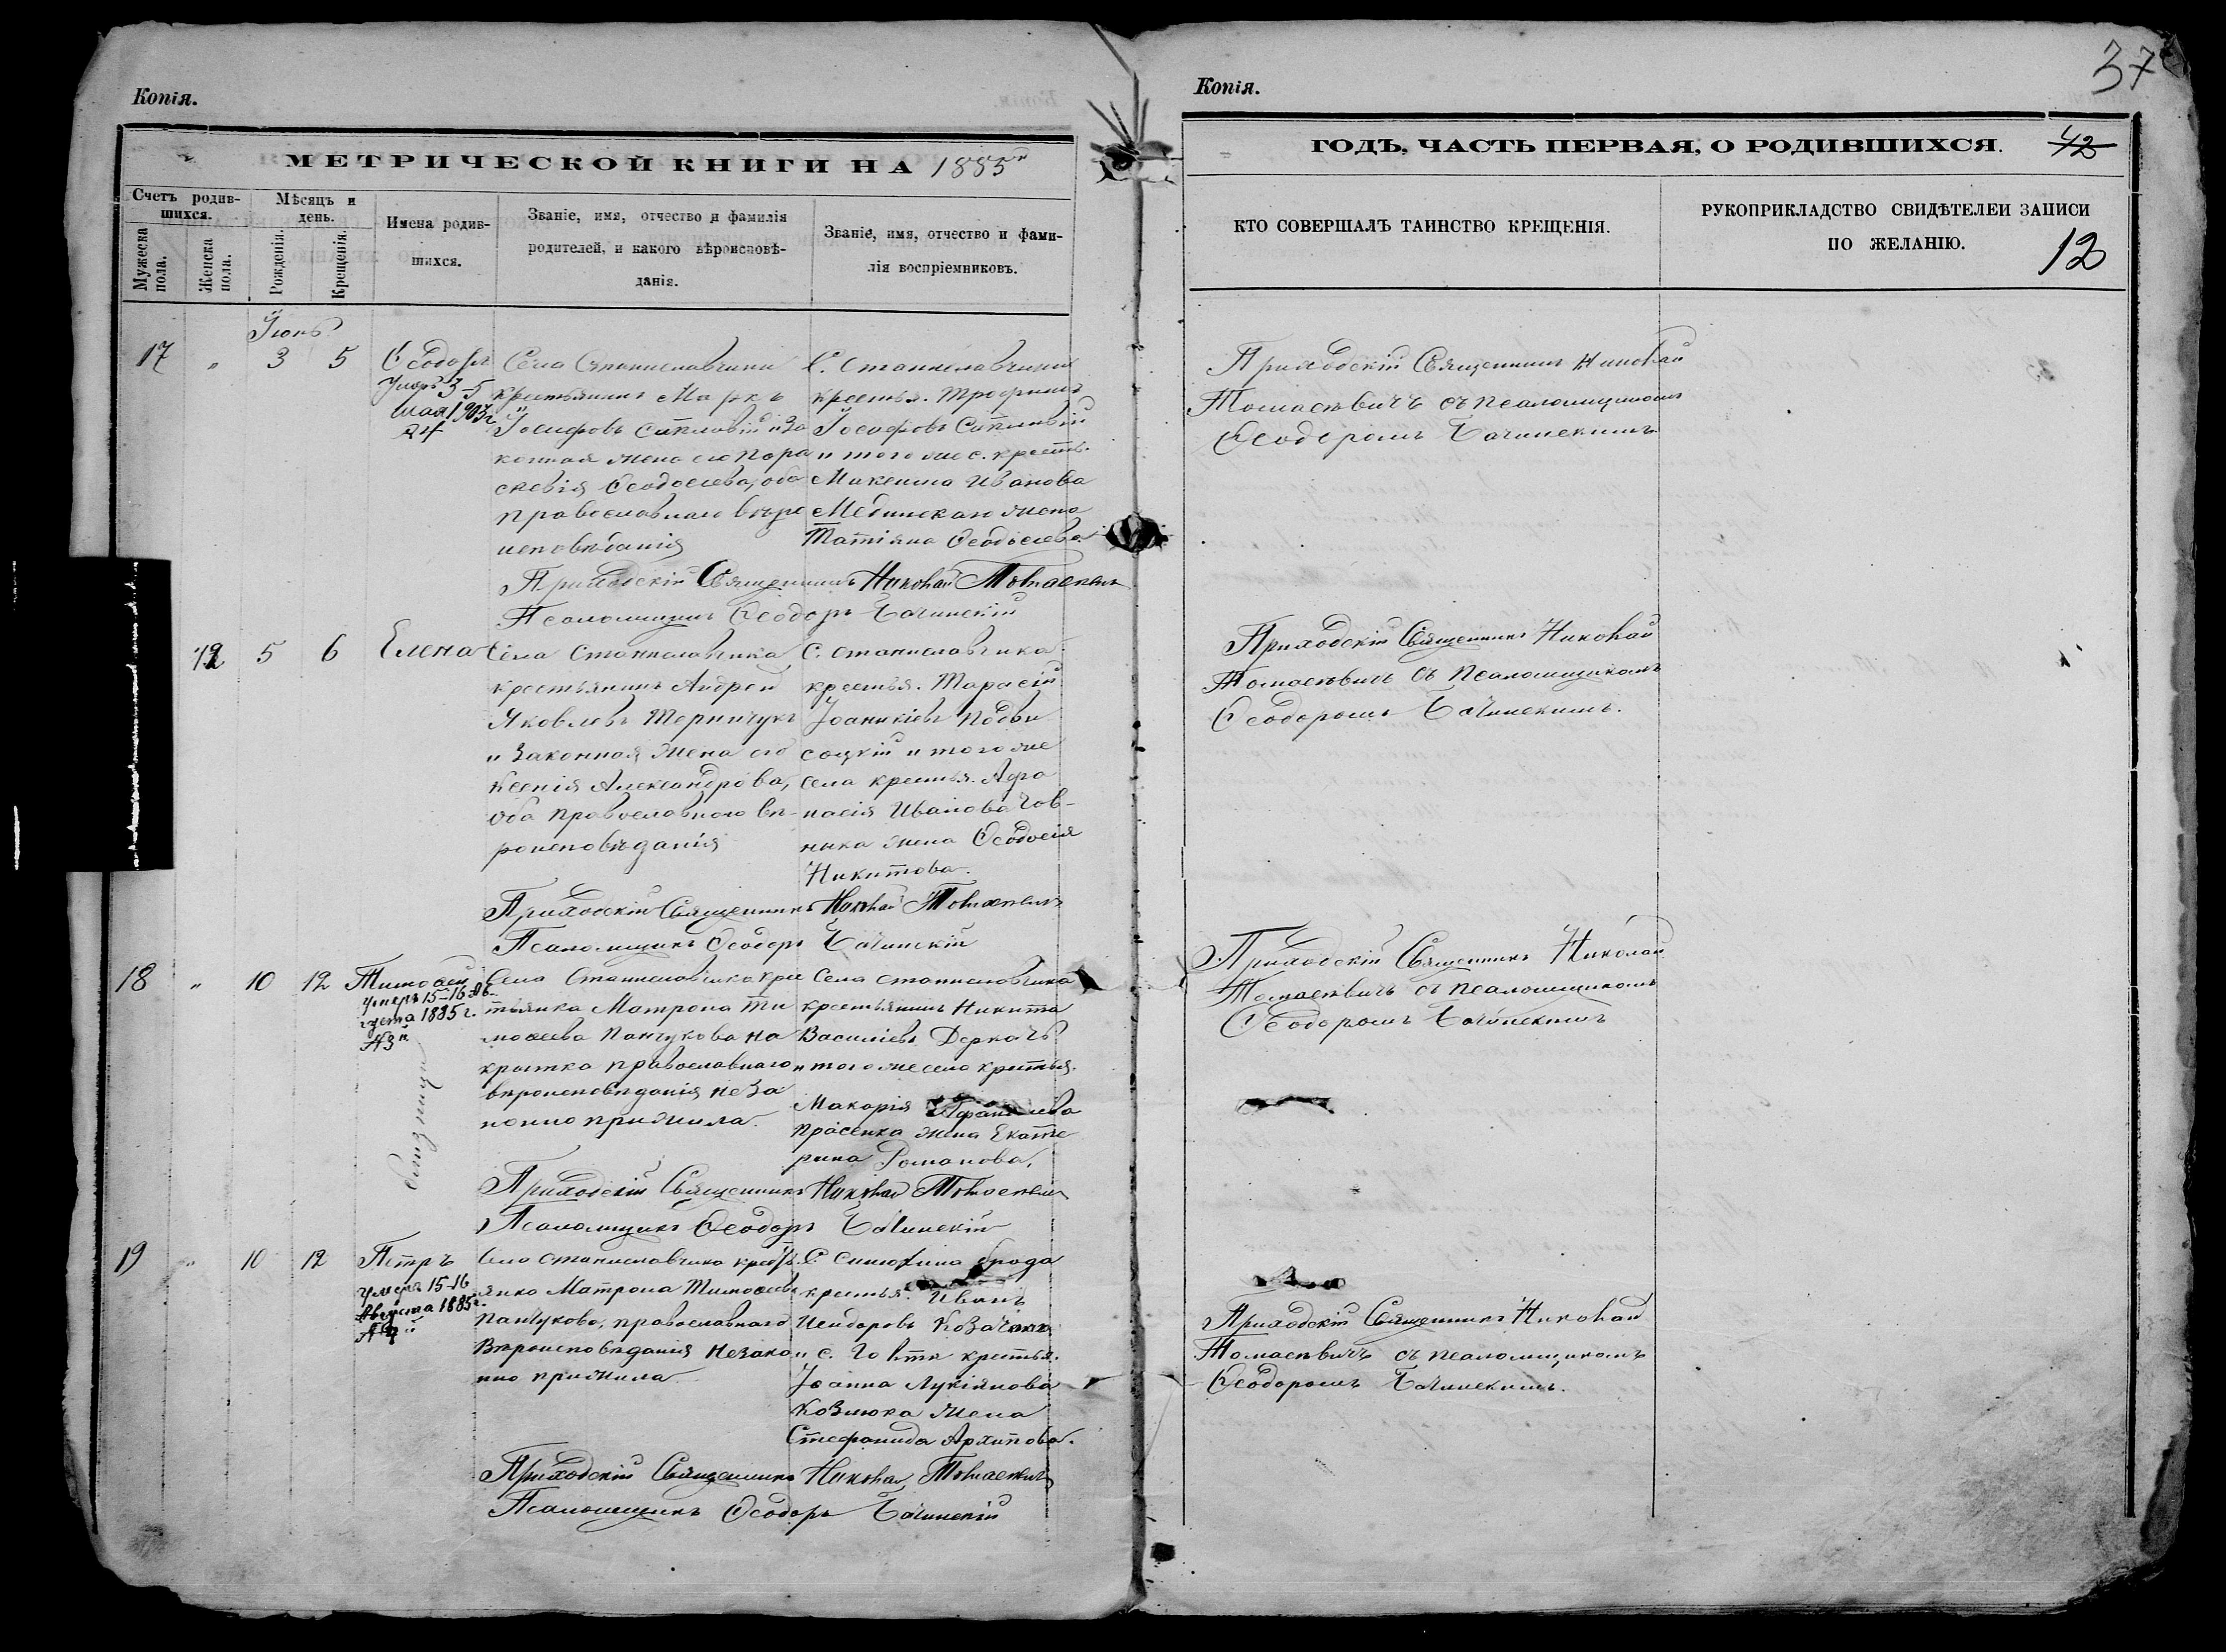 Копія.
МЕТРИЧЕСКОЙ КНИГИ НА 1885й
Счетъ родив-
шихся.
Мѣсяцъ и
день.
Имена родив-
шихся.
Званіе, имя, отчество и фамилія
родителей, и какого вѣроисповѣ-
данія.
Званіе, имя, отчество и фами-
лія воспріемниковъ.
Мужеска
пола.
Женска
пола.
Рожденія.
Крещенія.
Іюнь
17 " 3 5 Ѳеодоръ
умеръ 3-5
мая 1903г.
24
Села Станиславчика
крестьянинъ Маркъ
Іосифовъ и за
конная жена его Пора
скевія Ѳеодосіева, оба
православнаго вѣро
исповѣданія
С. Станиславчика
крестья. Трофимъ
Іосифовъ
и того же с. крестья.
Микенина Иванова
Мединскаго жена
Татіяна Ѳеодосіева
Приходскій Священникъ Николай Томасевичъ
Псаломщикъ Ѳеодоръ Бачинскій
12 5 6 Елена
Села Станиславчика
крестьянинъ Андрей
Яковлевъ Терничукъ
и законная жена его
Ксенія Александрова,
оба православнаго вѣ-
роисповѣданія
С. Станиславчика
крестья. Тарасій
Іоаникіевъ Подви
соцкій и того же
села крестья. Афа
насія Иванова Гов-
нака жена Ѳеодосія
Никитова.
Приходскій Священникъ Николай Томасевичъ
Псаломщикъ Ѳеодоръ Бачинскій
18 " 10 12 Тимоѳей
умеръ 15-16 Ав-
густа 1885 г.
близнецы
Села Станиславчика крес
тьянка Матрона Ти
моѳеева Панчукова на
крытка православнаго
вѣроисповѣданія неза
конно прижила.
Села Станиславчика
крестьянинъ Никита
Василіевъ Деркачъ
и того же села крестья.
Макарія
Прасенка жена Екате
рина Романова,
Приходскій Священникъ Николай Томасевичъ
Псаломщикъ Ѳеодоръ Бачинскій
19 " 10 12 Петръ
умеръ 15-16
Августа 1885 г.
Села Станиславчика крестья
янка Матрона Тимоѳеева
Панчукова, православнаго
Вѣроисповѣданія незако
нно прижила
С. Синюхина брода
крестья. Иванъ
Исидоровъ
и с. Голтя крестья.
Іоанна Лукіянова
Козлюка жена
Стефанида Архипова.
Приходскій Священникъ Николай Томасевичъ
Псаломщикъ Ѳеодоръ Бачинскій
Копія.
37
ГОДЪ, ЧАСТЬ ПЕРВАЯ, О РОДИВШИХСЯ.
42
КТО СОВЕРШАЛЪ ТАИНСТВО КРЕЩЕНІЯ.
РУКОПРИКЛАДСТВО СВИДѢТЕЛЕЙ ЗАПИСИ
ПО ЖЕЛАНІЮ.
12
Приходскій Священникъ Николай
Томасевичъ съ псаломщикомъ
Ѳеодоромъ Бачинскимъ
Приходскій Священникъ Николай
Томасевичъ съ псаломщикомъ
Ѳеодоромъ Бачинскимъ.
Приходскій Священникъ Николай
Томасевичъ съ псаломщикомъ
Ѳеодоромъ Бачинскимъ
Приходскій Священникъ Николай
Томасевичъ съ псаломщикомъ
Ѳеодоромъ Бачинскимъ.